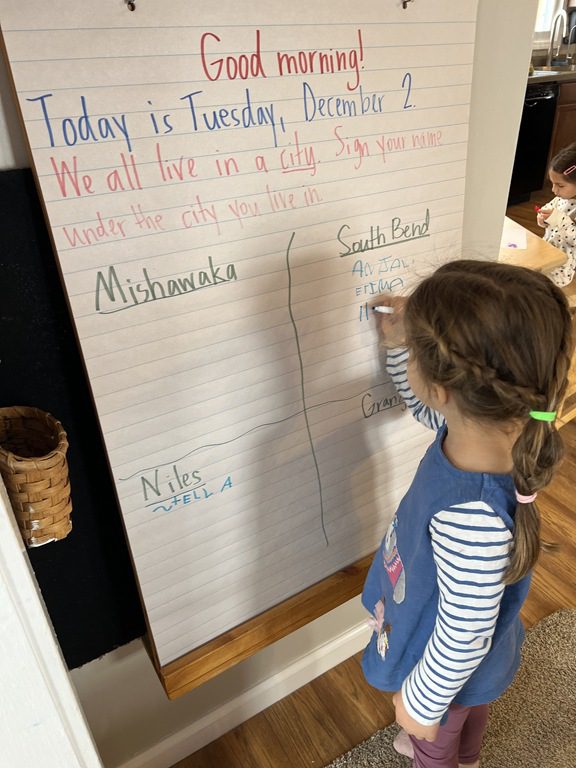 Good morning!
Today is Tuesday, December 2.
We all live in a city. Sign your name
under the city you live in.
Mishawaka
South Bend
ANJALI
Niles